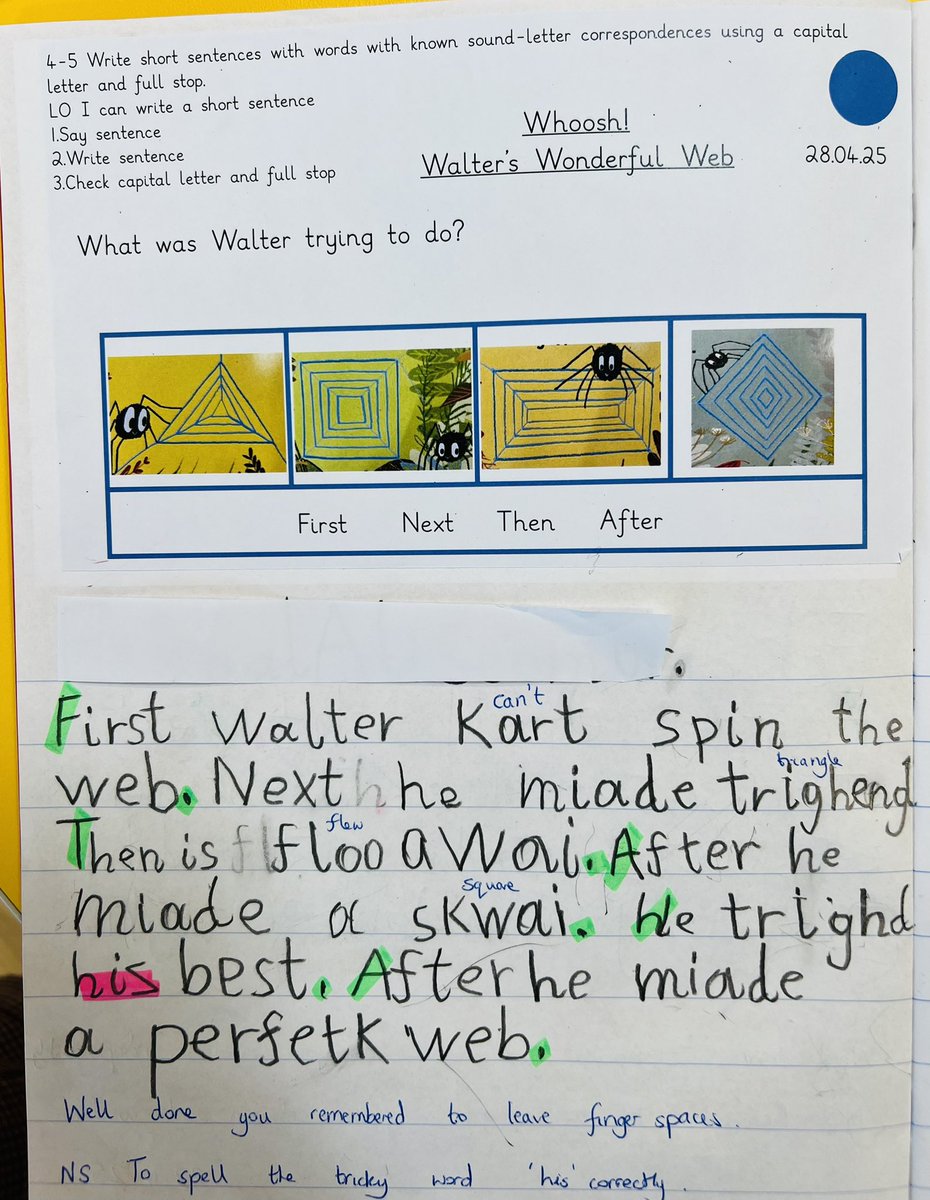 4-5 Write short sentences with words with known sound-letter correspondences using a capital
letter and full stop.
LO I can write a short sentence
1.Say sentence
2.Write sentence
3.Check capital letter and full stop
Whoosh!
Walter's Wonderful Web
28.04.25
What was Walter trying to do?
First Next Then After
can't
First Walter Kart spin the
triangle
web. Next he miade trighend
flew
Then is floo a Wai. After he
square
miade a skwai. He trighd
his best. After he miade
a perfetk web.
Well done you remembered to leave finger spaces.
NS To spell the tricky word 'his' correctly.